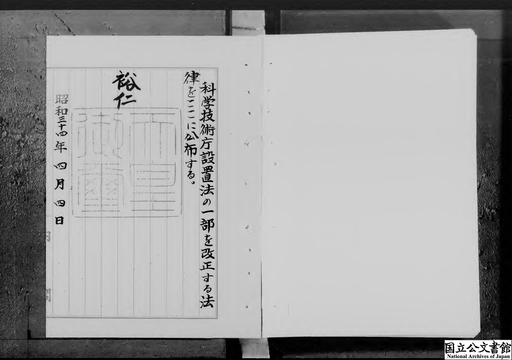 科学技術庁設置法の一部を改正する法
律をここに公布する。
裕仁
天皇
御璽
昭和三十四年四月四日
国立公文書館
National Archives of Japan